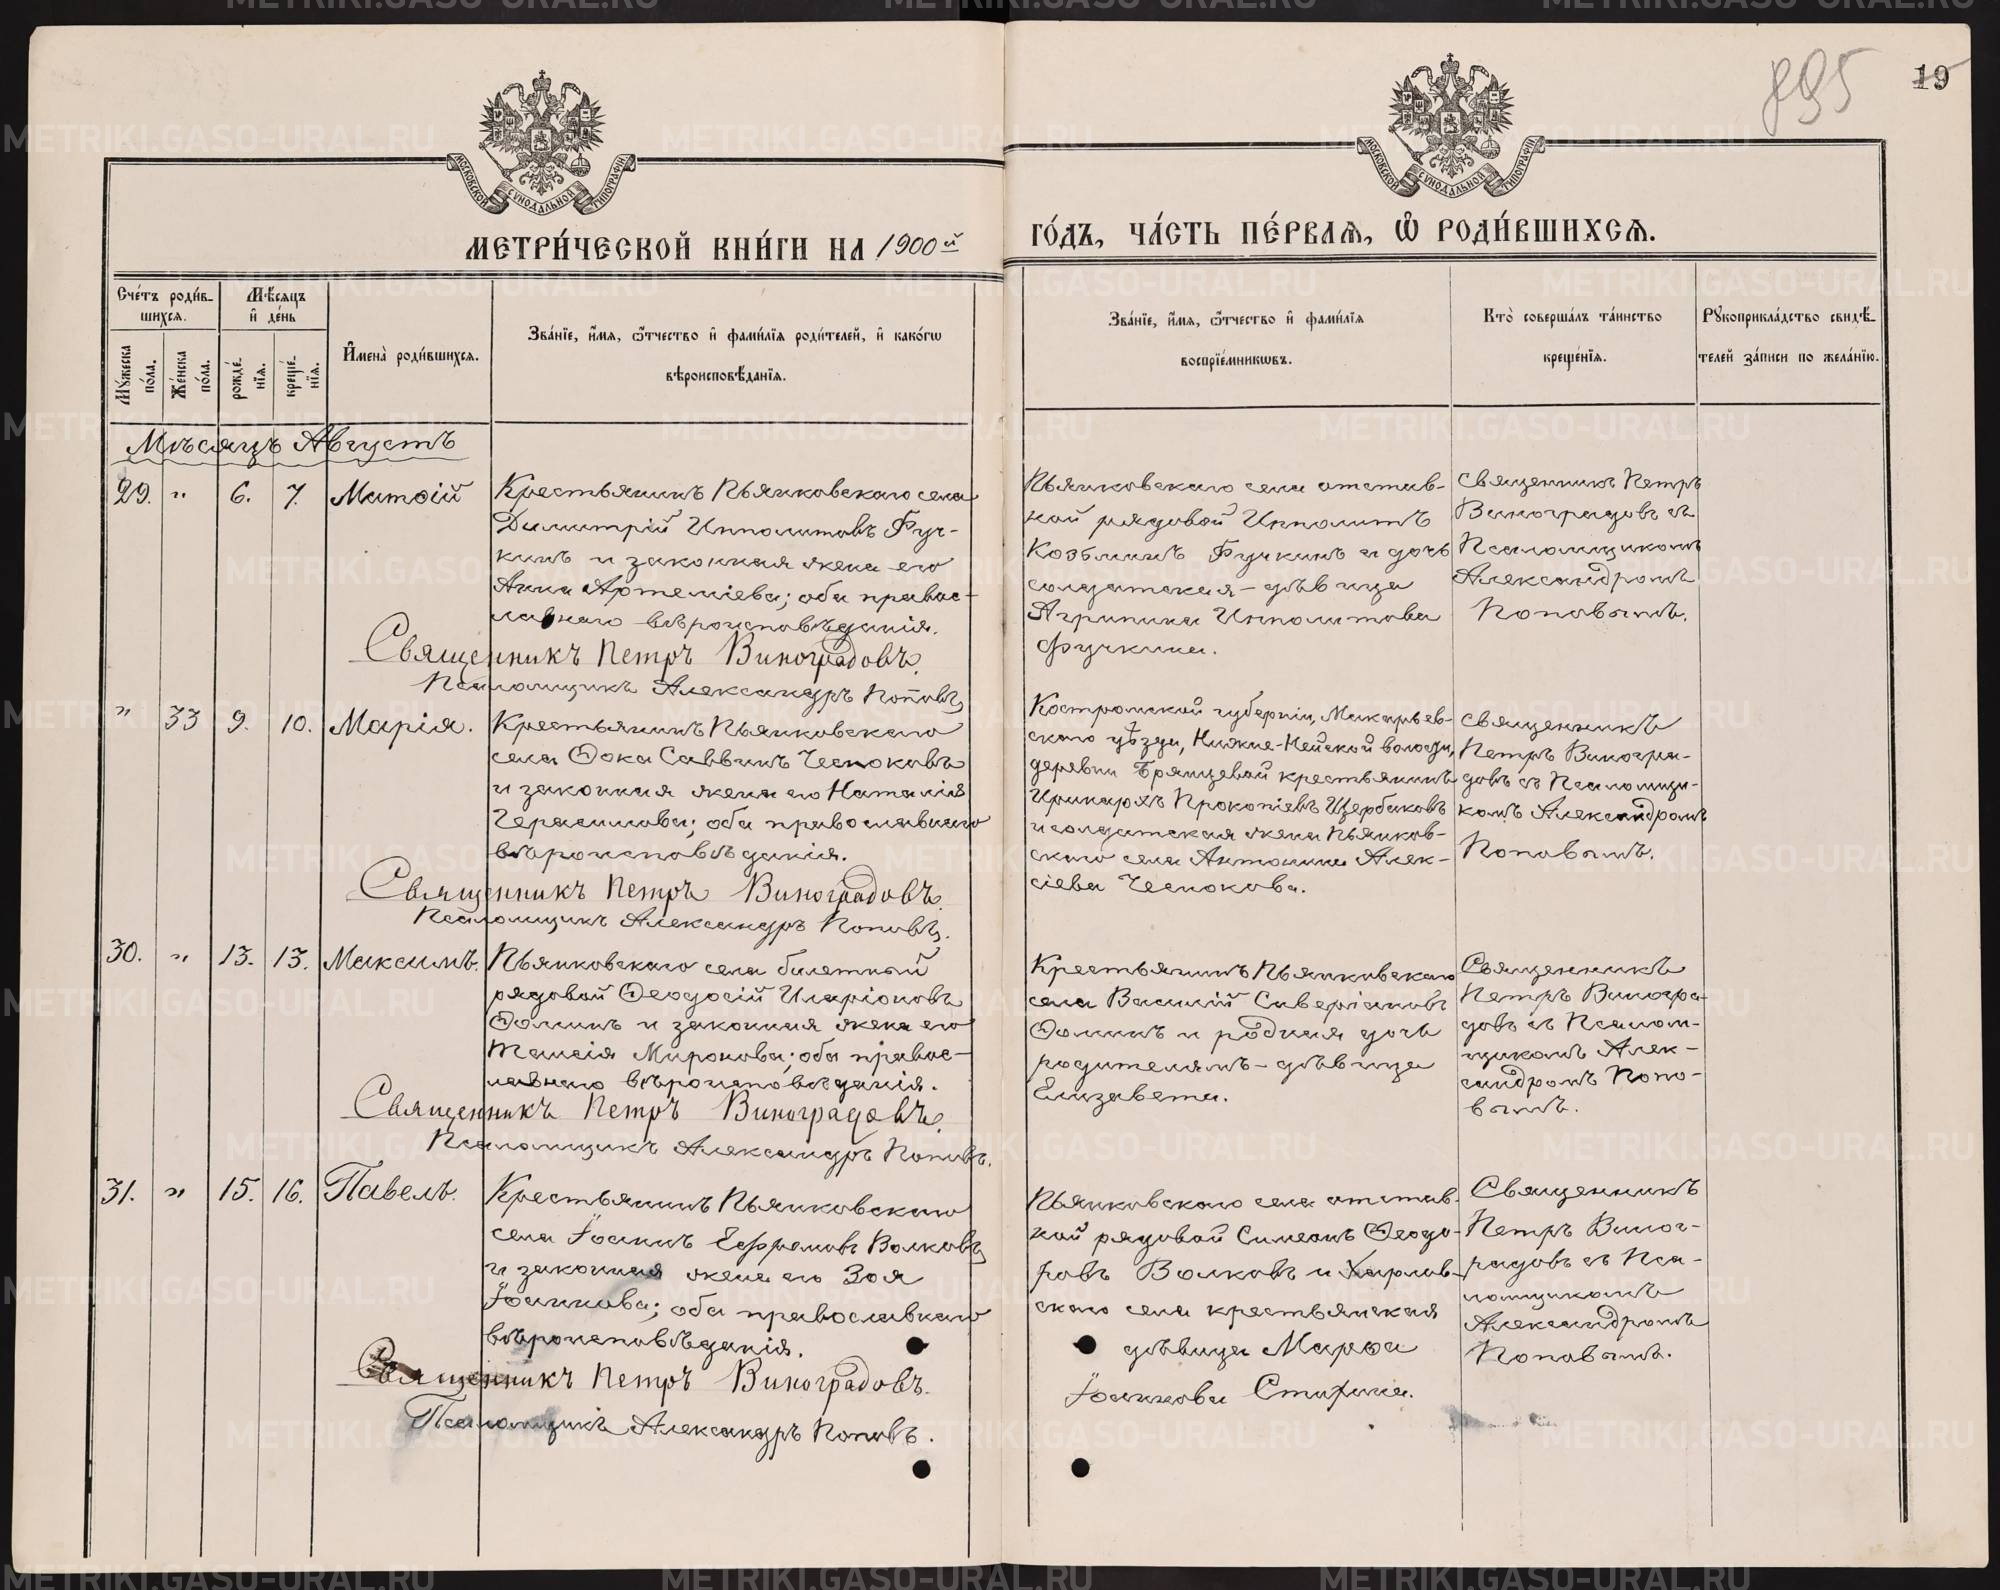 895
19
МОСКОВСКОЙ СѴНОДАЛЬНОЙ ТИПОГРАФІИ
МОСКОВСКОЙ СѴНОДАЛЬНОЙ ТИПОГРАФІИ
МЕТРИ́ЧЕСКОЙ КНИ́ГИ НА 1900й
ГО́ДЪ, ЧА́СТЬ ПЕ́РВАѦ, Ѽ РОДИ́ВШИХСѦ.
Сче́тъ роди́в-
шихсѧ.
Мѣ́сѧцъ
и҆ де́нь
Мꙋ́жеска по́ла.
Же́нска по́ла.
рожде́нїѧ.
креще́нїѧ.
И҆мена̀ роди́вшихсѧ.
Зва́нїе, и҆́мѧ, ѻ҆́тчество и҆ фами́лїѧ роди́телей, и҆ како́гѡ
вѣроисповѣ́данїѧ.
Зва́нїе, и҆́мѧ, ѻ҆́тчество и҆ фами́лїѧ
воспрїе́мникѡвъ.
Кто̀ соверша́лъ та́инство
креще́нїѧ.
Рꙋкоприкла́дство свидѣ́-
телей за́писи по жела́нїю.
Мѣсяцъ Августъ
29. " 6. 7. Матѳій
Крестьянинъ Пьянковскаго села
Димитрій Ипполитовъ Фуч-
кинъ и законная жена его
Анна Артеміева; оба правос-
лавнаго вѣроисповѣданія.
Священникъ Петръ Виноградовъ.
Псаломщикъ Александръ Поповъ
Пьянковскаго села отстав-
ной рядовой Ипполитъ
Козьминъ Фучкинъ и дочь
солдатская - дѣвица
Агрипина Ипполитова
Фучкина.
Священникъ Петръ
Виноградовъ съ
Псаломщикомъ
Александромъ
Поповымъ.
" 33 9. 10. Марія.
Крестьянинъ Пьянковскаго
села Ѳока Саввинъ Чесноковъ
и законная жена его Наталія
Герасимова; оба православнаго
вѣроисповѣданія.
Священникъ Петръ Виноградовъ.
Псаломщикъ Александръ Поповъ.
Костромской губерніи, Макарьев-
скаго уѣзда, Нижне-Нейской волости,
деревни Брянцевой крестьянинъ
Иринархъ Прокопіевъ Щербаковъ
и солдатская жена Пьянков-
скаго села Антонина Алек-
сіева Чеснокова.
Священникъ
Петръ Виногра-
довъ съ Псаломщи-
комъ Александромъ
Поповымъ.
30. " 13. 13. Максимъ.
Пьянковскаго села билетный
рядовой Ѳеодосій Иларіоновъ
Ѳоминъ и законная жена его
Таисія Миронова; оба правос-
лавнаго вѣроисповѣданія.
Священникъ Петръ Виноградовъ.
Псаломщикъ Александръ Поповъ.
Крестьянинъ Пьянковскаго
села Василій Сиверіановъ
Ѳоминъ и родная дочь
родителямъ - дѣвица
Елизавета.
Священникъ
Петръ Виногра-
довъ съ Псалом-
щикомъ Алек-
сандромъ Попо-
вымъ.
31. " 15. 16. Павелъ.
Крестьянинъ Пьянковскаго
села Іоаннъ Ефремовъ Волковъ
и законная жена его Зоя
Іоаннова; оба православнаго
вѣроисповѣданія.
Священникъ Петръ Виноградовъ.
Псаломщикъ Александръ Поповъ.
Пьянковскаго села отстав-
ной рядовой Симеонъ Ѳеодо-
ровъ Волковъ и Харлов-
скаго села крестьянская
дѣвица Марѳа
Іоаннова
Священникъ
Петръ Виног-
радовъ съ Пса-
ломщикомъ
Александромъ
Поповымъ.
METRIKI.GASO-URAL.RU